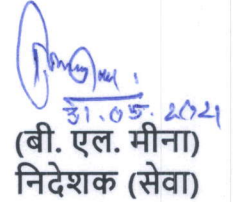 31.05.2021
(बी. एल. मीना)
निदेशक (सेवा)